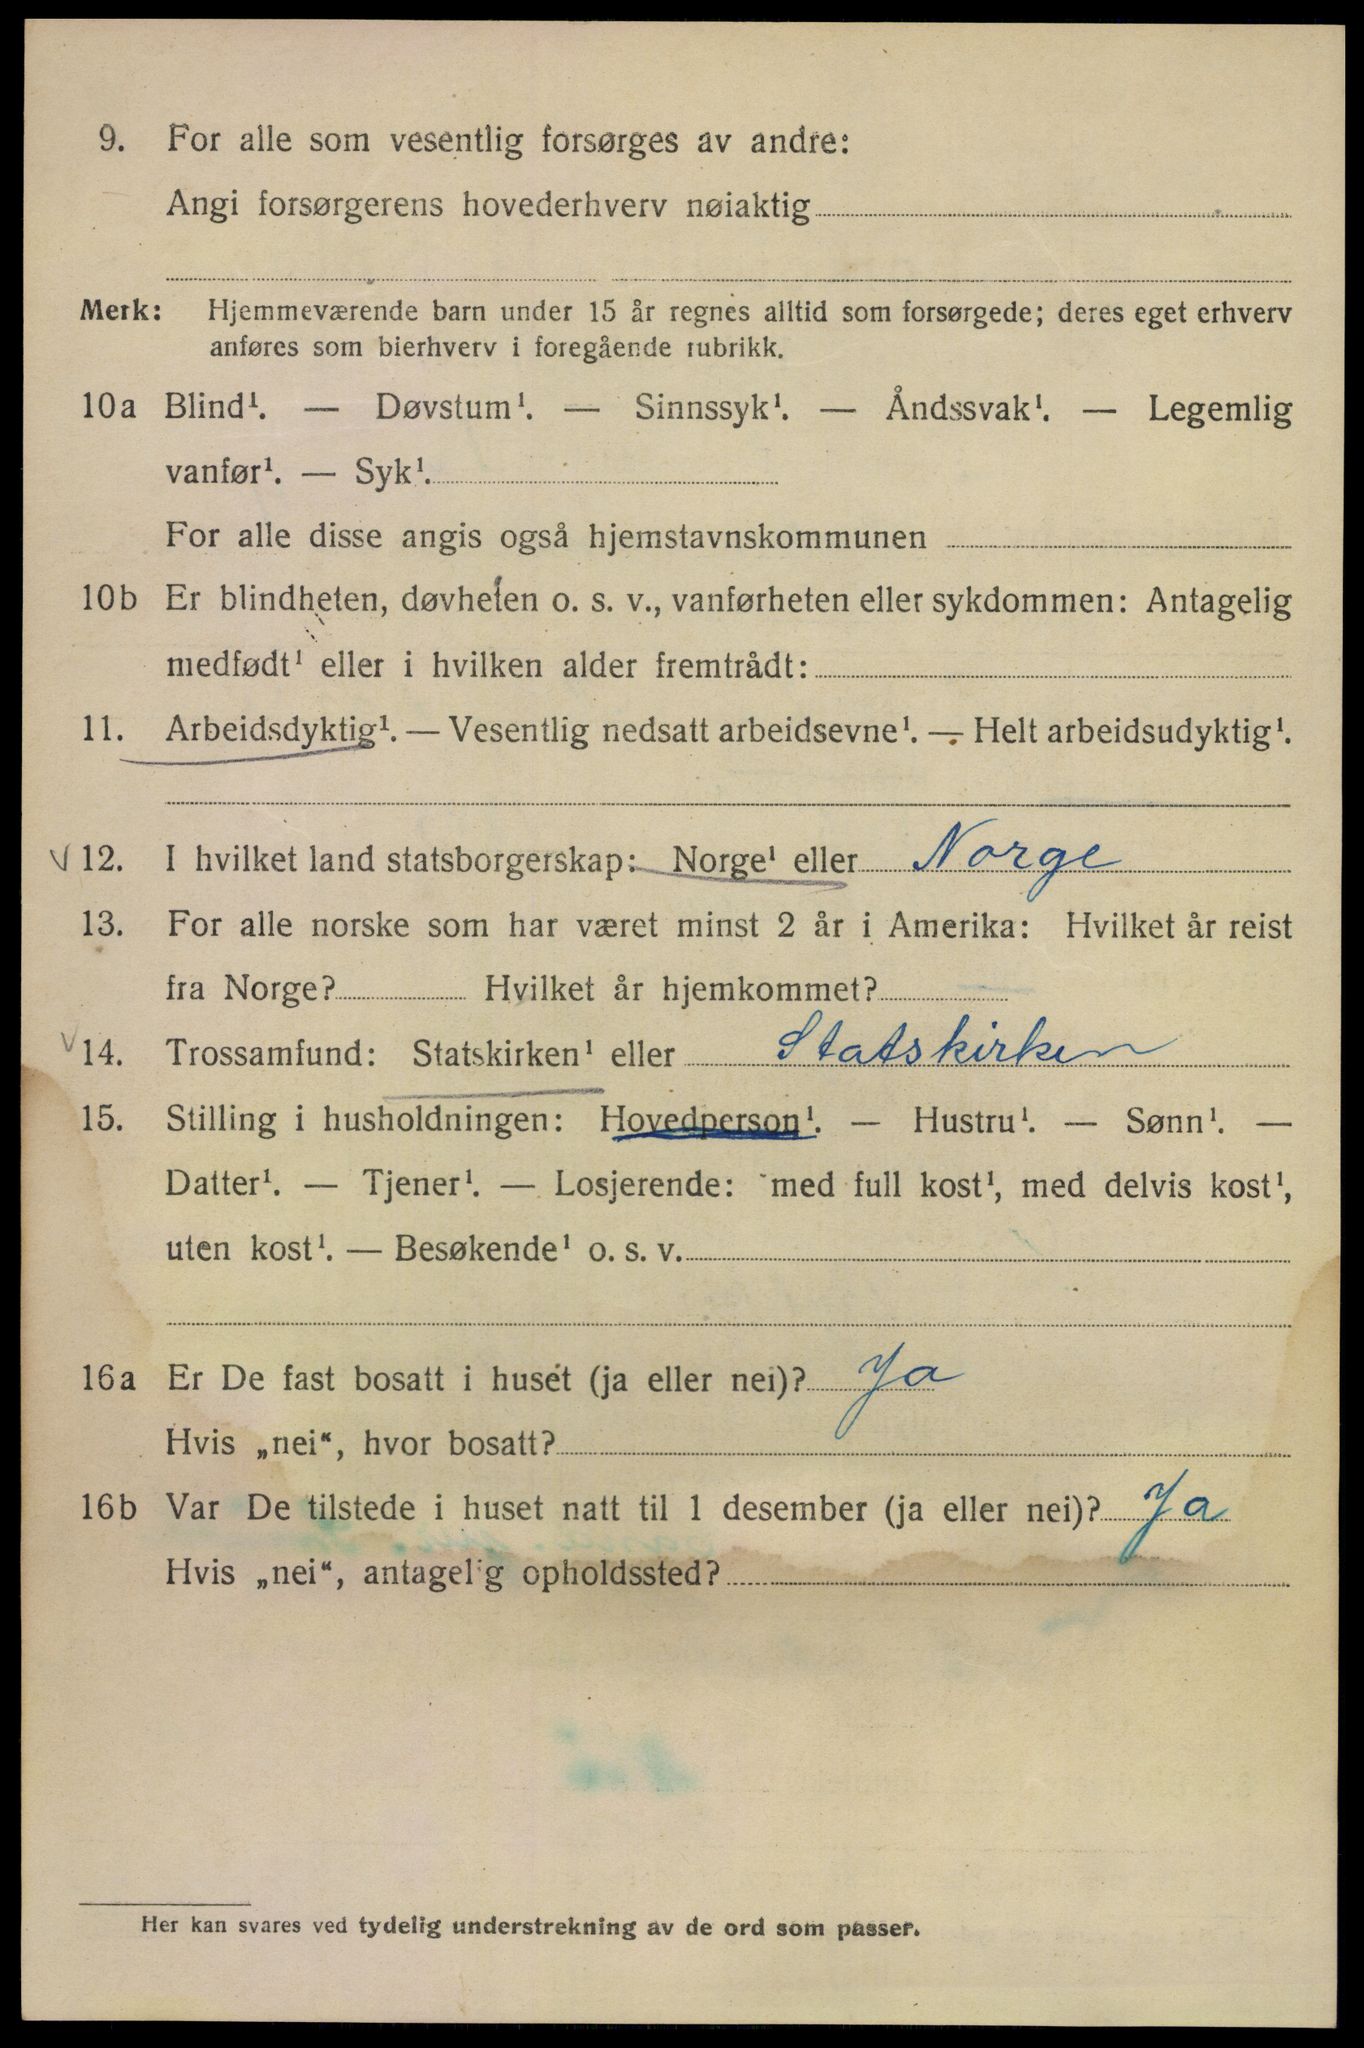 9. For alle som vesentlig forsørges av andre:
Angi forsørgerens hovederhverv nøiaktig
Merk: Hjemmeværende barn under 15 år regnes alltid som forsørgede; deres eget erhverv
anføres som bierhverv i foregående rubrikk.
10a Blind¹. — Døvstum¹. — Sinnssyk¹. — Åndssvak¹. — Legemlig
vanfør¹. — Syk¹.
For alle disse angis også hjemstavnskommunen
10b Er blindheten, døvheten o. s. v., vanførheten eller sykdommen: Antagelig
medfødt¹ eller i hvilken alder fremtrådt:
11. Arbeidsdyktig¹. — Vesentlig nedsatt arbeidsevne¹. — Helt arbeidsudyktig¹.
V 12. I hvilket land statsborgerskap: Norge¹ eller Norge
13. For alle norske som har været minst 2 år i Amerika: Hvilket år reist
fra Norge? Hvilket år hjemkommet?
V 14. Trossamfund: Statskirken¹ eller Statskirken
15. Stilling i husholdningen: Hovedperson¹. — Hustru¹. — Sønn¹. —
Datter¹. — Tjener¹. — Losjerende: med full kost¹, med delvis kost¹,
uten kost¹. — Besøkende¹ o. s. v.
16a Er De fast bosatt i huset (ja eller nei)? Ja
Hvis „nei“, hvor bosatt?
16b Var De tilstede i huset natt til 1 desember (ja eller nei)? Ja
Hvis „nei“, antagelig opholdssted?
Her kan svares ved tydelig understrekning av de ord som passer.